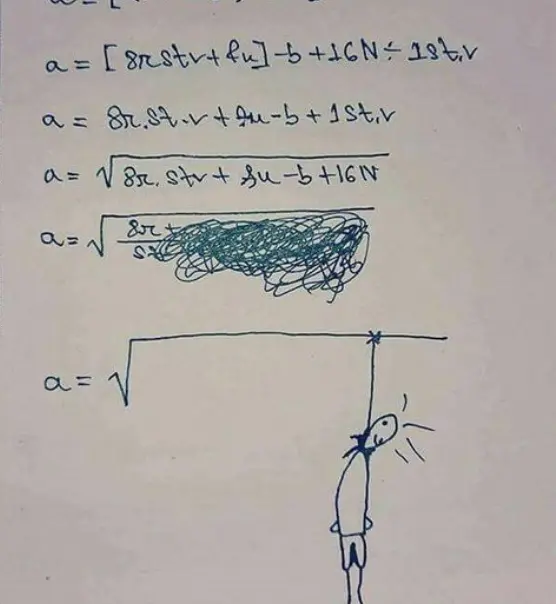 a = [8π stv + fu] - b + 16N ÷ 1st.v
a = 8π.st.v + fu - b + 1st.v
a = √8π.stv + fu - b + 16N
a = √8π +
a = √